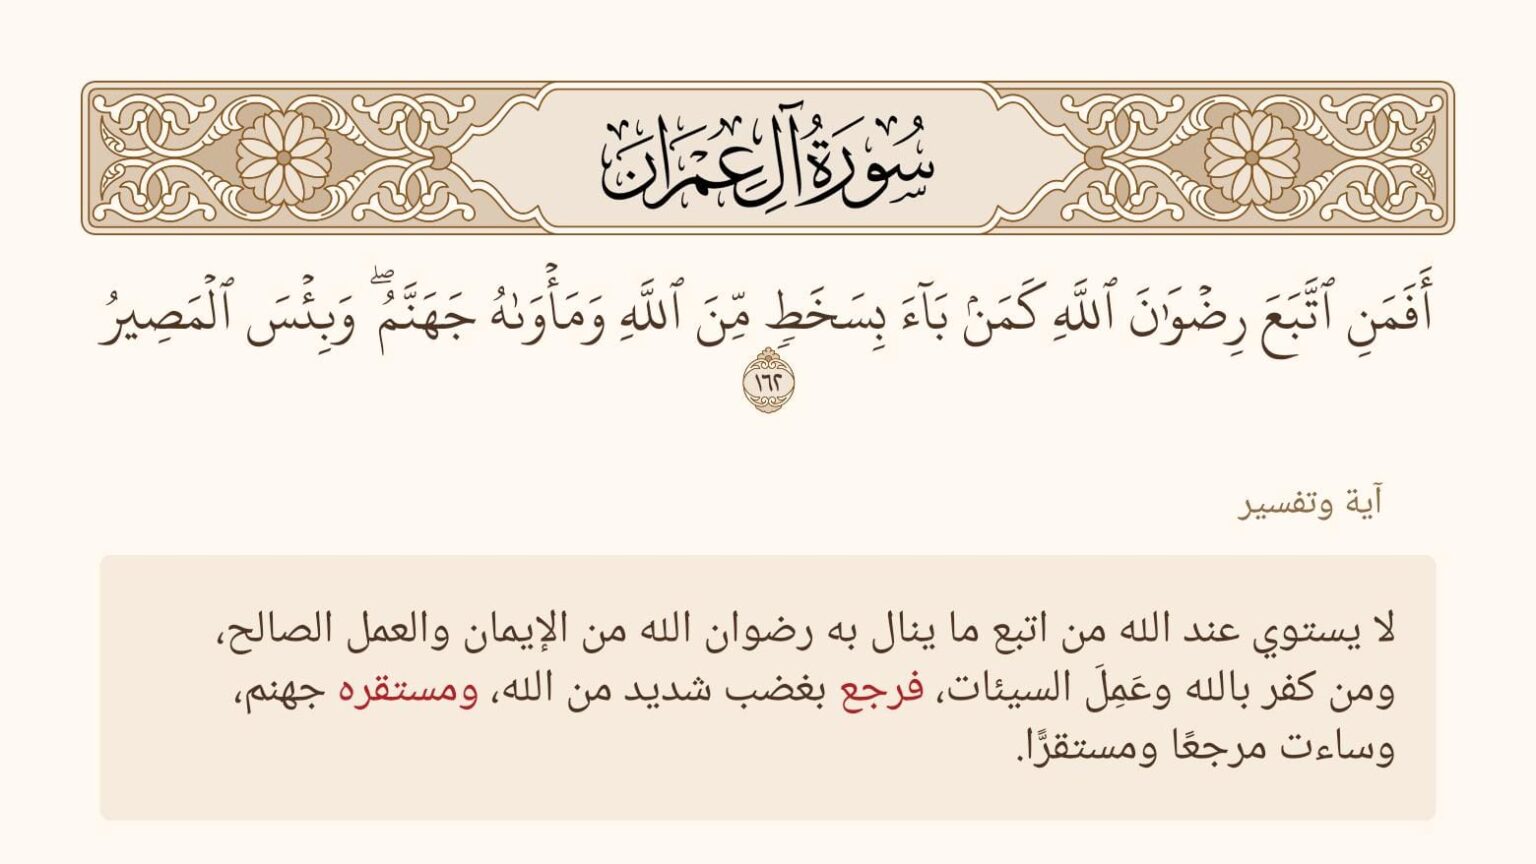 سُورَةُ آلِ عِمْرَانَ
أَفَمَنِ ٱتَّبَعَ رِضْوَٰنَ ٱللَّهِ كَمَنۢ بَآءَ بِسَخَطٍ مِّنَ ٱللَّهِ وَمَأْوَىٰهُ جَهَنَّمُ ۖ وَبِئْسَ ٱلْمَصِيرُ
١٦٢
آية وتفسير
لا يستوي عند الله من اتبع ما ينال به رضوان الله من الإيمان والعمل الصالح،
ومن كفر بالله وعَمِلَ السيئات، فرجع بغضب شديد من الله، ومستقره جهنم،
وساءت مرجعًا ومستقرًّا.